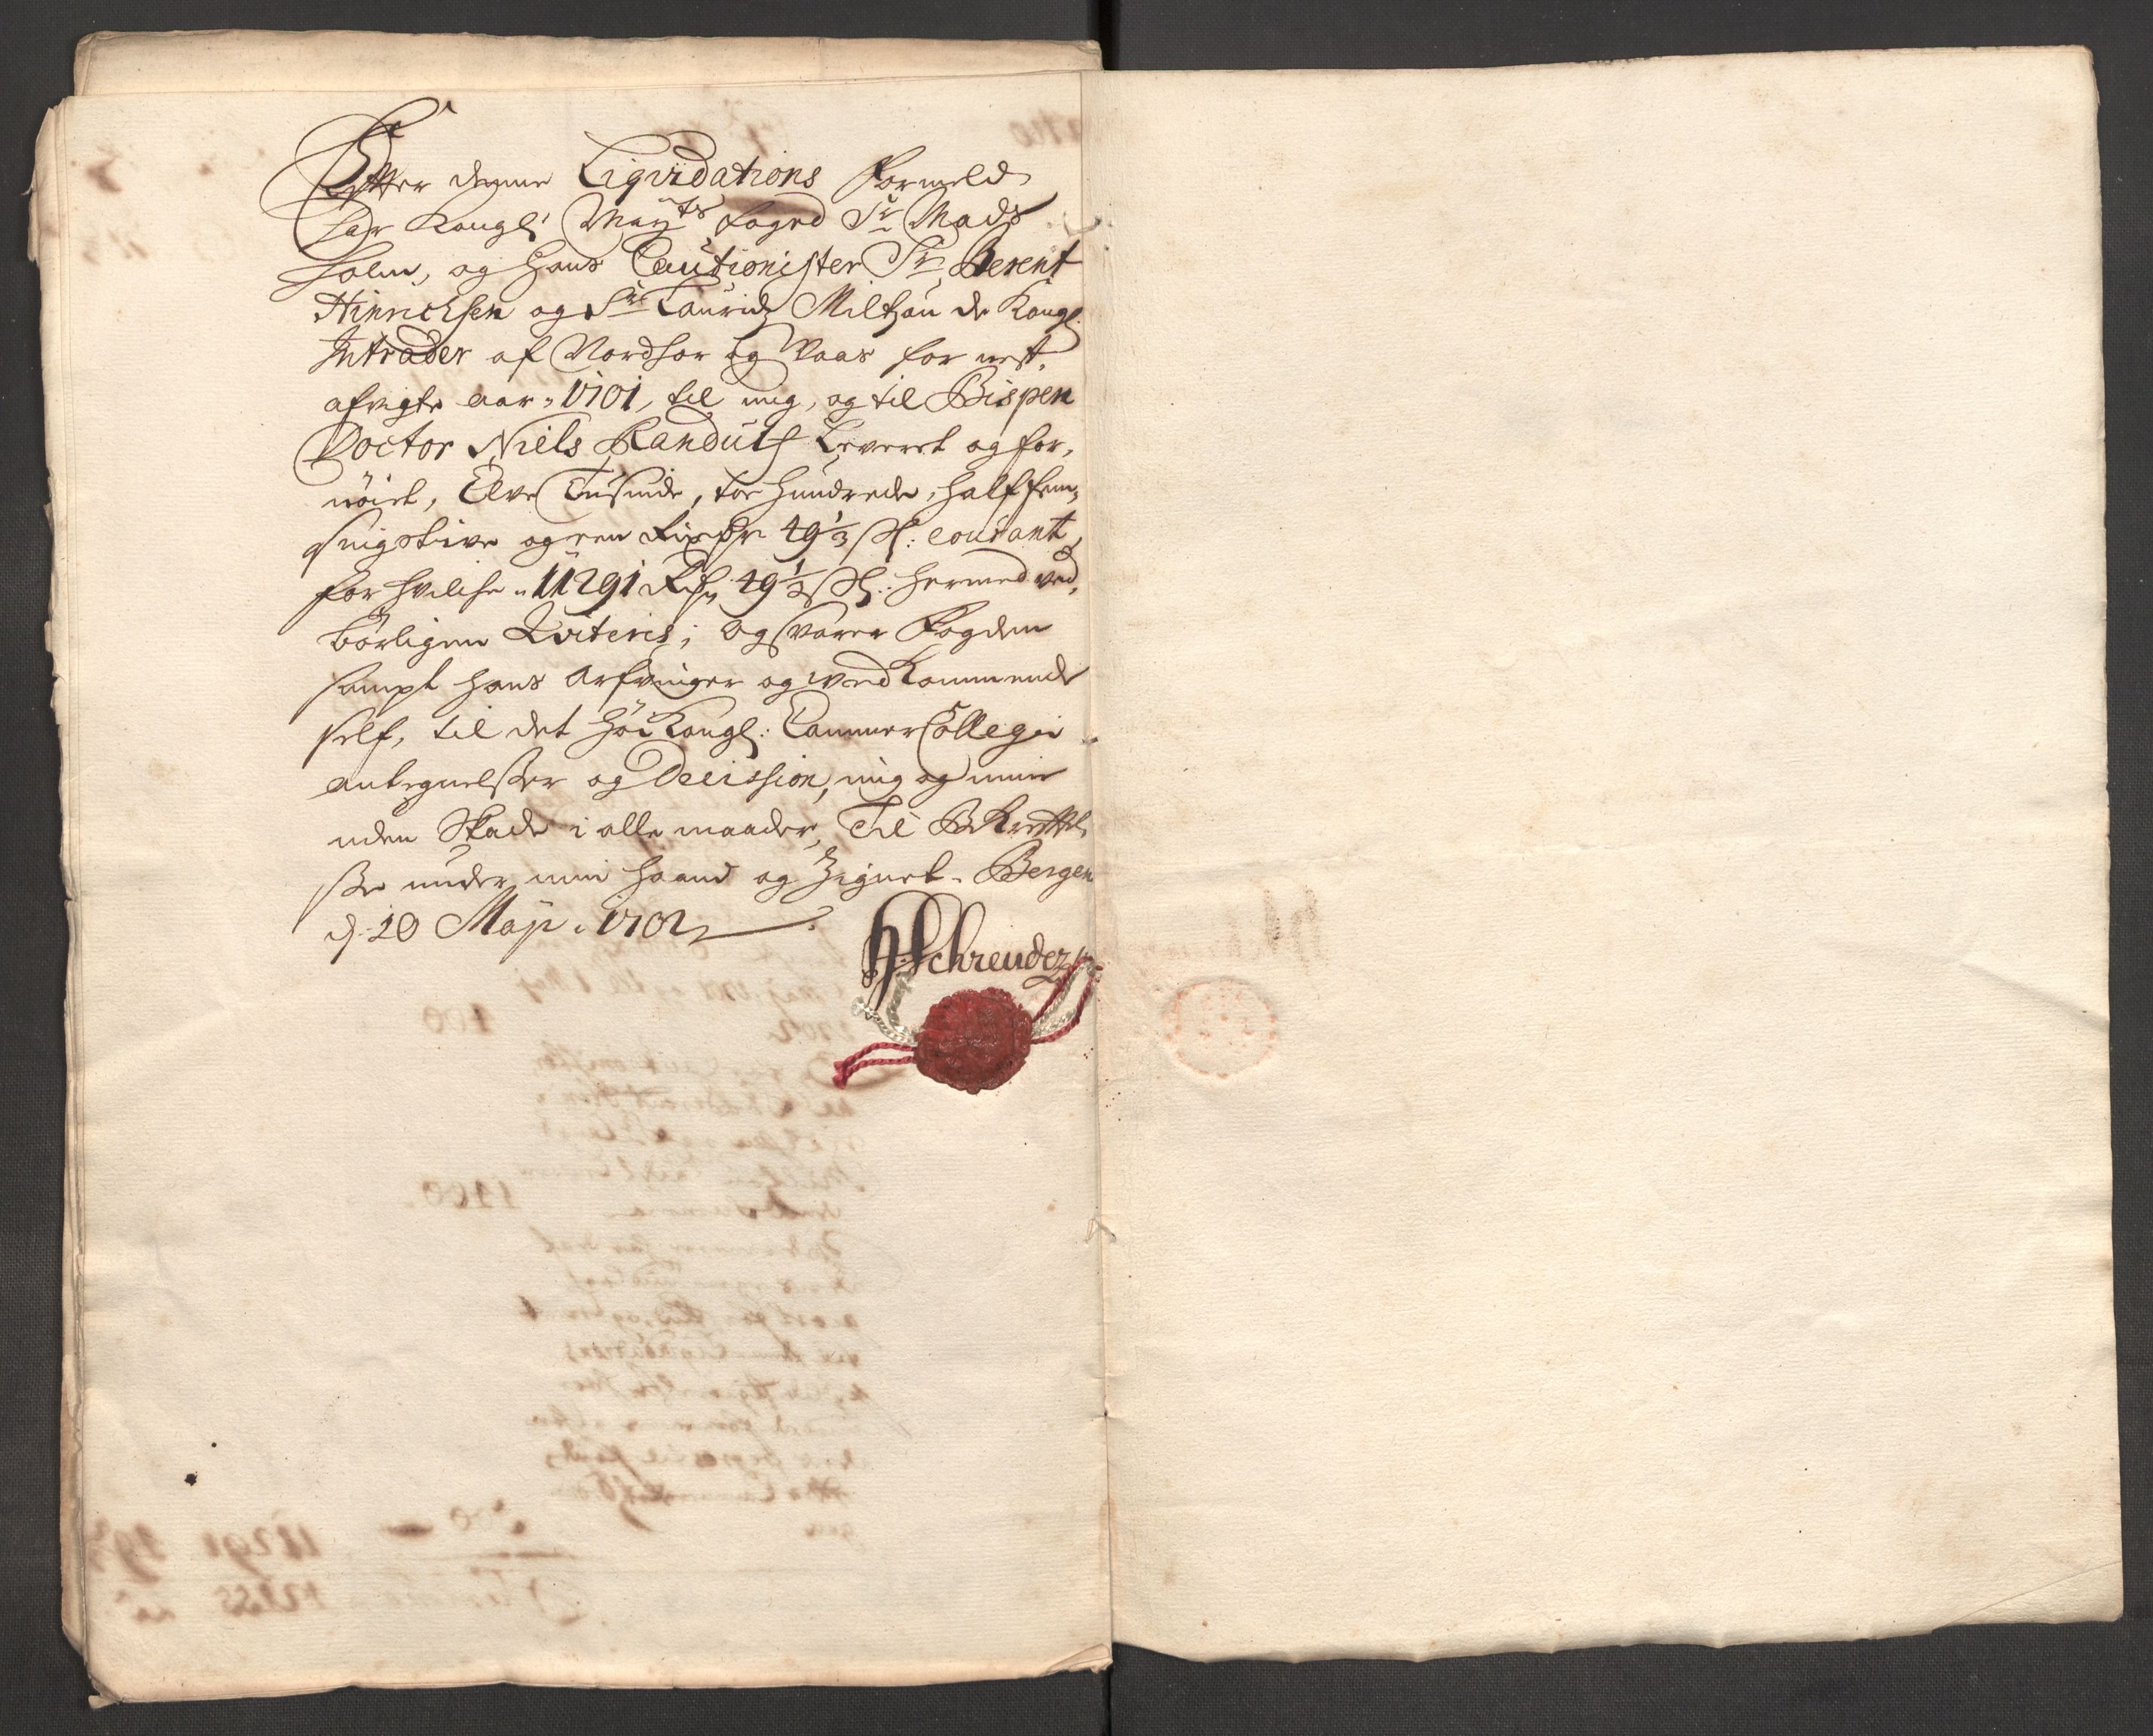 Effter denne Liqvidations formeld
har Kongl: Maÿts foged Sr Mads
Holm, og hans Cautionister Sr Berent
Hinrichsen og Sr Lauridz Miltzau de Kongl.
Intrader af Nordhor og Vaas for nest,
afvigte aar, 1701, til mig, og til Bispen
Doctor Niels Randulf Leveret og for,
nöiet, Elve Tusinde, toe hundrede, halffem,
sinstiuve og een Rixdr 49⅓ s: courant,
for hvilche 11291 Rdr 49⅓ s: hermed ved,
börligen Qviteris; og svarer Fogden
sampt hans Arfvinger og vedkommende
self, til det höi Kongl: Cammer Collegii
antegnelsser og Decission, mig og mine
uden Skade i alle maader, Til Bekreftel,
sse under min Haand og Zignet. Bergen
d. 20 Maji 1702
H Schreuder